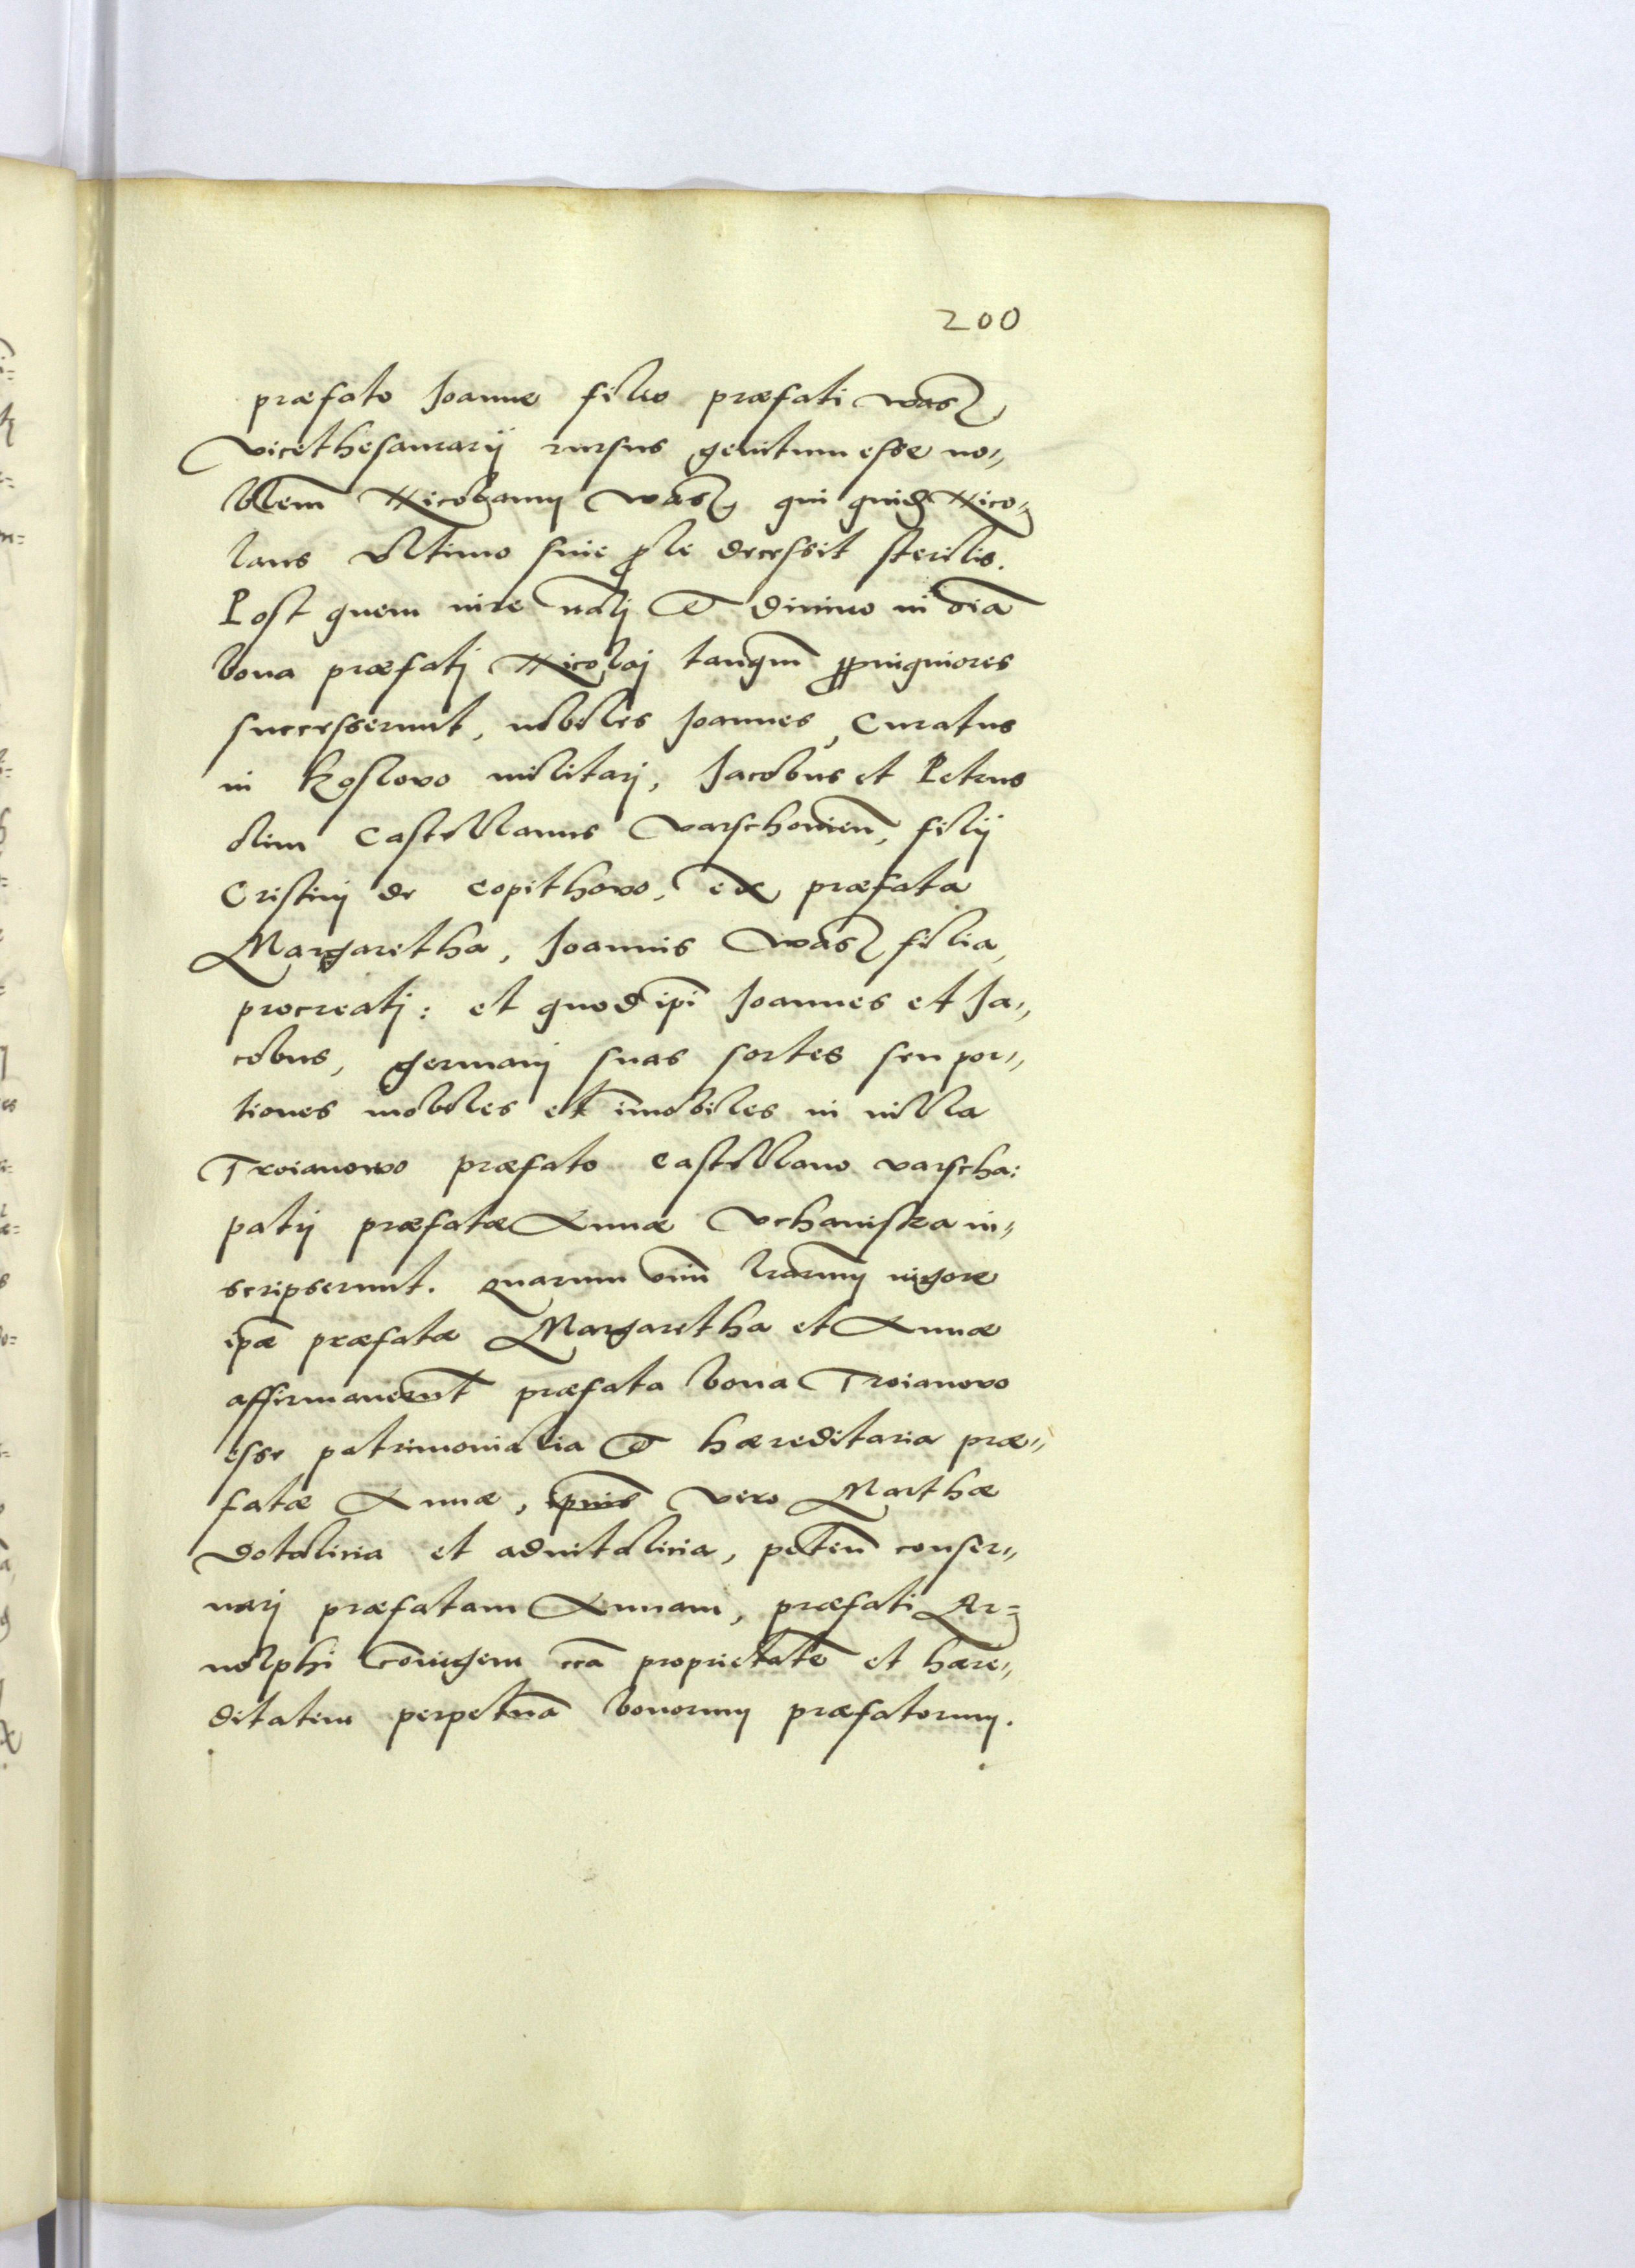 200
præfato Joanne filio præfati Wasz,
Vicethesaurarij rursus genitum esse no„
bilem Nicolaum Wasz, qui quidē Nico„
laus ultimo sine ꝓle decessit sterilis.
Post quem iure nāli & diuino in oīa
bona præfatj Nicolaj tanqm̄ ꝓpinquiores
successerunt, nobiles Joannes, Curatus
in Koslovo militarj, Jacobus et Petrus
olim Castellanus Varschouien̄, filij
Cristinj de Copithovo, ex præfata
Margaretha, Joannis Wasz filia,
procreatj: et quod ipī Joannes et Ja„
cobus, germanj suas sortes seu por„
tiones mobiles et īmobiles in villa
Troianowo præfato Castellano Varscha:
patrj præfatæ Annæ Vchaniska in„
scripserunt. Quarum oīm lrārum vigore
ipǣ præfatæ Margaretha et Annæ
affirmauerūt præfata bona Troianovo
esse patrimonialia & hæreditaria præ„
fatæ Annæ, ipsius vero Marthæ
dotalicia et aduitalicia, peten̄ conser„
uarj præfatam Annam, præfati Ar„
nolphi cōniugem cc̄a proprietatē et hære„
ditatem perpetuā bonorum præfatorum.